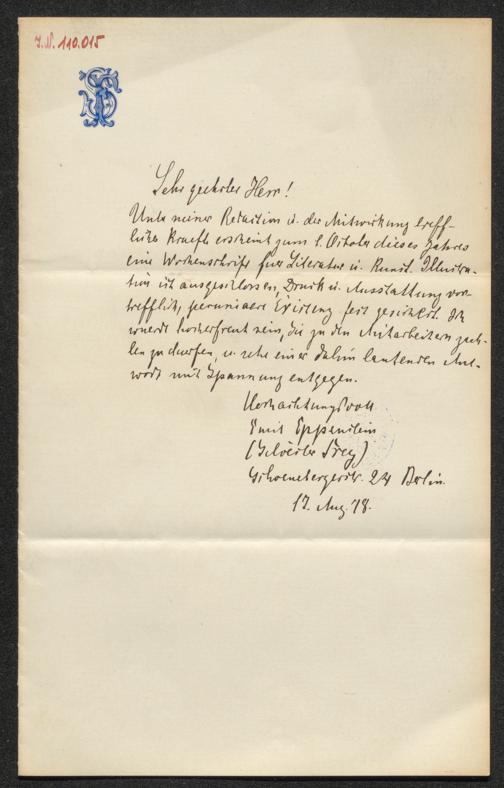 I.N. 110.015
Sehr geehrter Herr!
Unter meiner Redaction u. der Mitwirkung treff-
licher Kraefte erscheint zum 1. October dieses Jahres
eine Wochenschrift fuer Literatur u. Kunst. Illustra-
tion ist ausgeschlossen, Druck u. Ausstattung vor-
trefflich, pecuniaere Existenz fest gesichert. Ich
wuerde hocherfreut sein, Sie zu den Mitarbeitern zaeh-
len zu duerfen, u. sehe einer dahin lautenden Ant-
wort mit Spannung entgegen.
Hochachtungsvoll
Emil Eppenstein
(Silvester Frey)
Schoenebergerstr. 24 Berlin.
17. Aug. 78.